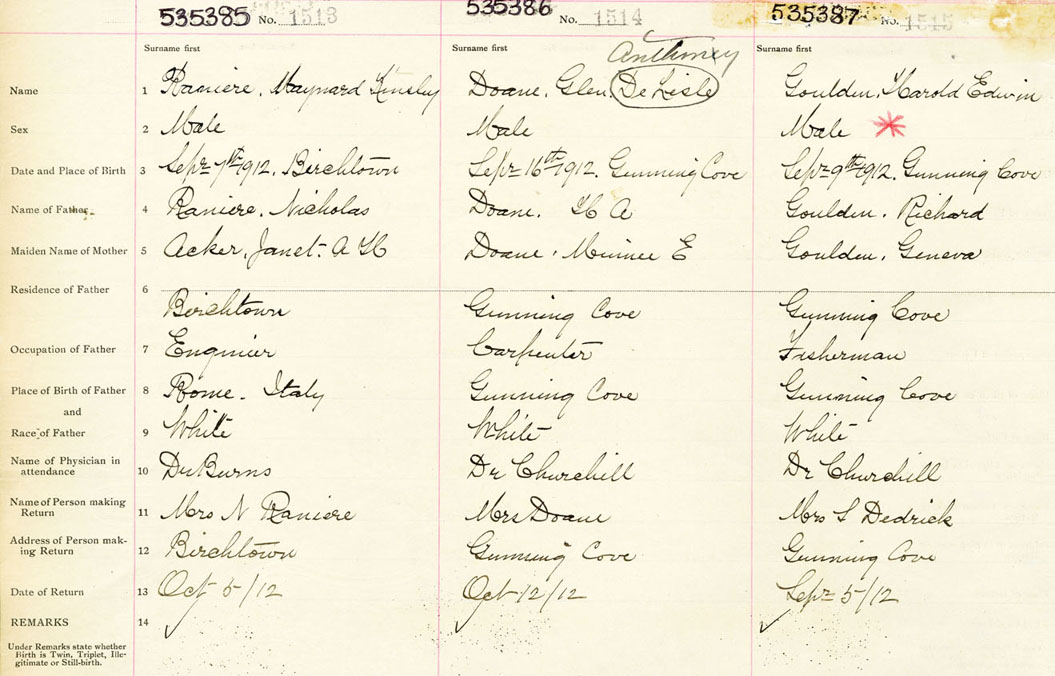 535385 No. 1513 535386 No. 1514 535387 No. 1515
Surname first Surname first Anthony Surname first
Name 1 Raniere, Maynard Kinsley Doane, Glen, De Lisle Goulden, Harold Edwin
Sex 2 Male Male Male
Date and Place of Birth 3 Sept 7th 1912, Birchtown Sept 16th 1912. Gunning Cove Sept 9th 1912. Gunning Cove
Name of Father 4 Raniere, Nicholas Doane. H A Goulden, Richard
Maiden Name of Mother 5 Acker, Janet. A H Doane, Minnee E Goulden, Geneva
Residence of Father 6
Birchtown Gunning Cove Gunning Cove
Occupation of Father 7 Enginier Carpenter Fisherman
Place of Birth of Father 8 Rome. Italy Gunning Cove Gunning Cove
and
Race of Father 9 White White White
Name of Physician in
attendance 10 Dr Burns Dr Churchill Dr Churchill
Name of Person making
Return 11 Mrs N Raniere Mrs Doane Mrs S Dedrick
Address of Person mak-
ing Return 12 Birchtown Gunning Cove Gunning Cove
Date of Return 13 Oct 5/12 Oct 12/12 Sept 5/12
REMARKS 14
Under Remarks state whether
Birth is Twin, Triplet, Ille-
gitimate or Still-birth.